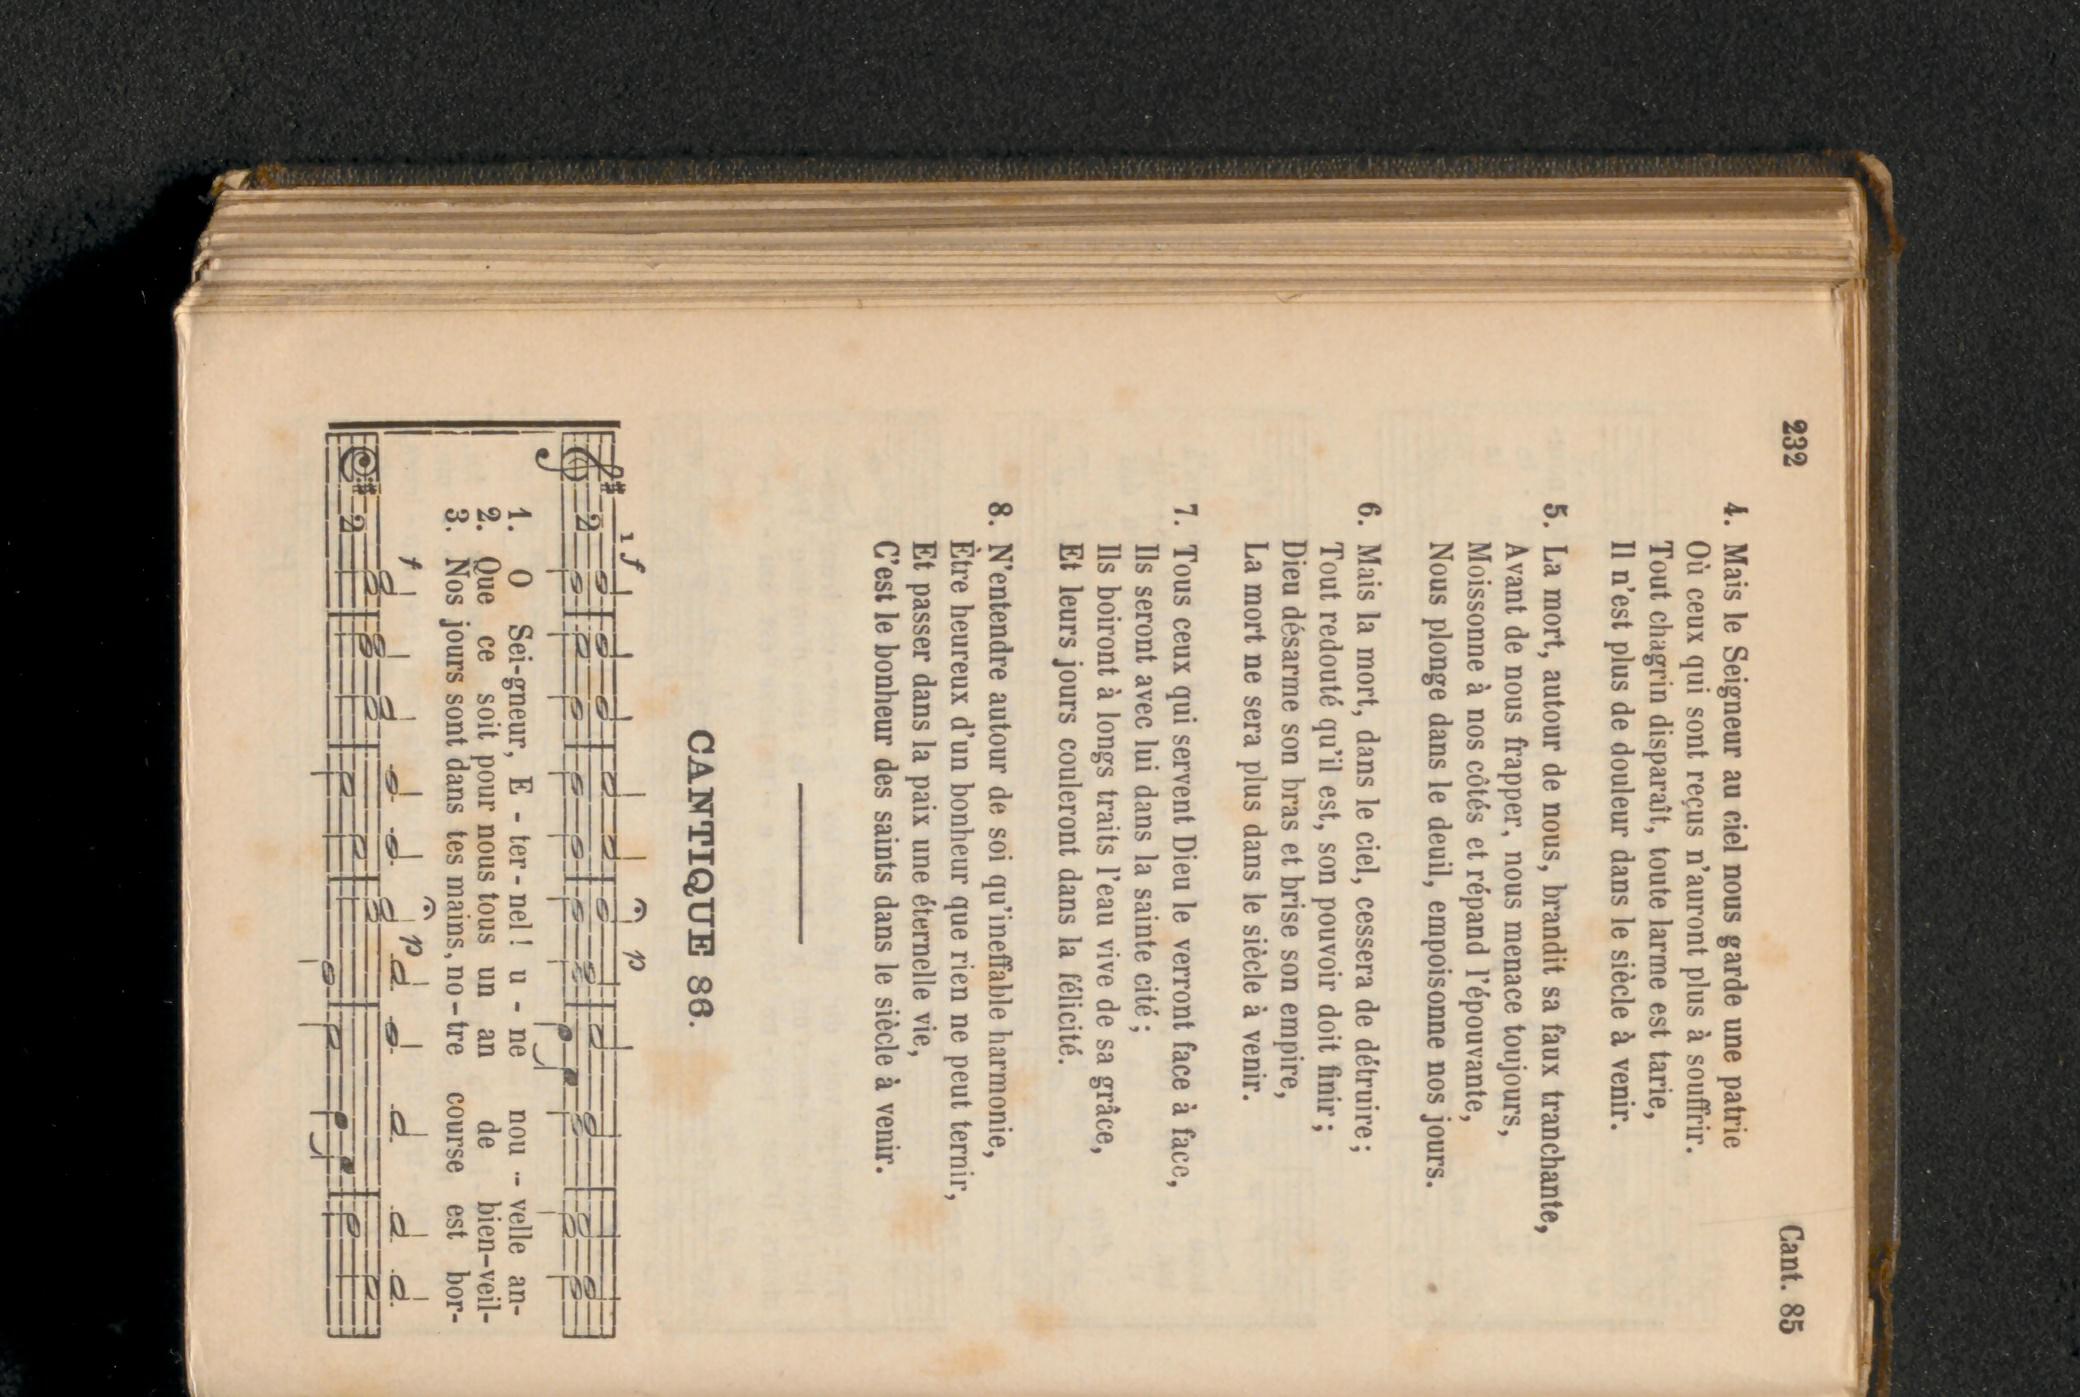 232 Cant. 85
4. Mais le Seigneur au ciel nous garde une patrie
Où ceux qui sont reçus n'auront plus à souffrir.
Tout chagrin disparaît, toute larme est tarie,
Il n'est plus de douleur dans le siècle à venir.
5. La mort, autour de nous, brandit sa faux tranchante,
Avant de nous frapper, nous menace toujours,
Moissonne à nos côtés et répand l'épouvante,
Nous plonge dans le deuil, empoisonne nos jours.
6. Mais la mort, dans le ciel, cessera de détruire;
Tout redouté qu'il est, son pouvoir doit finir;
Dieu désarme son bras et brise son empire,
La mort ne sera plus dans le siècle à venir.
7. Tous ceux qui servent Dieu le verront face à face,
Ils seront avec lui dans la sainte cité;
Ils boiront à longs traits l'eau vive de sa grâce,
Et leurs jours couleront dans la félicité.
8. N'entendre autour de soi qu'ineffable harmonie,
Être heureux d'un bonheur que rien ne peut ternir,
Et passer dans la paix une éternelle vie,
C'est le bonheur des saints dans le siècle à venir.
CANTIQUE 86.
1 f p
2
1. O Sei-gneur, E - ter - nel! u - ne nou - velle an-
2. Que ce soit pour nous tous un an de bien-veil-
3. Nos jours sont dans tes mains, no - tre course est bor-
f p
2